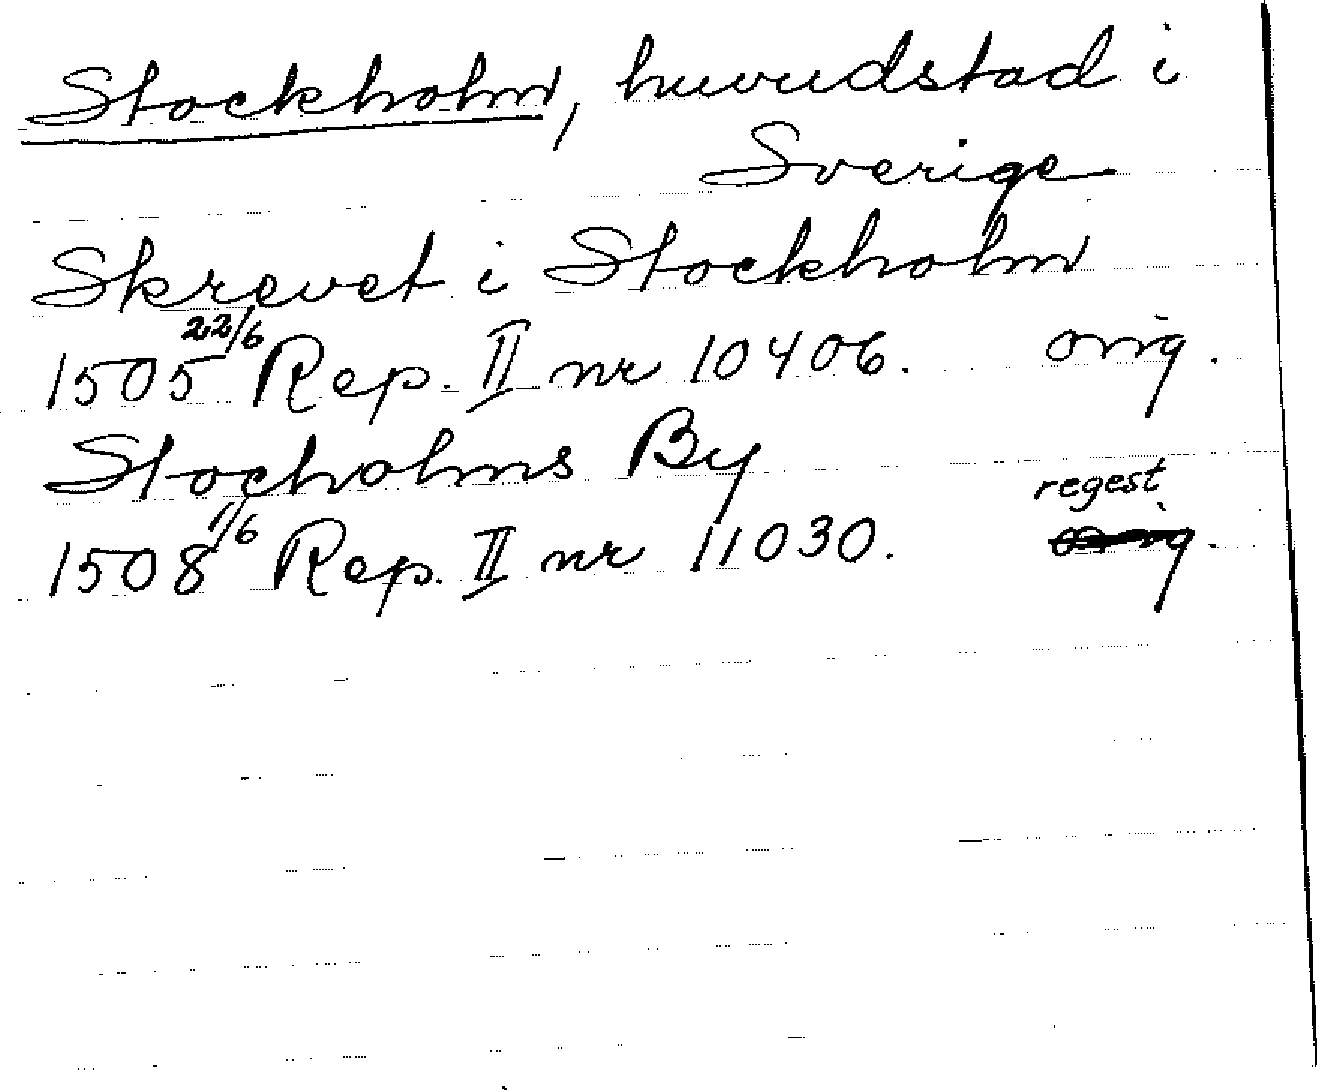 Stockholm, huvudstad i
Sverige
Skrevet i Stockholm
1505 22/6 Rep. II nr 10406. orig.
Stocholms By
regest
1508 1/6 Rep. II nr 11030. orig.